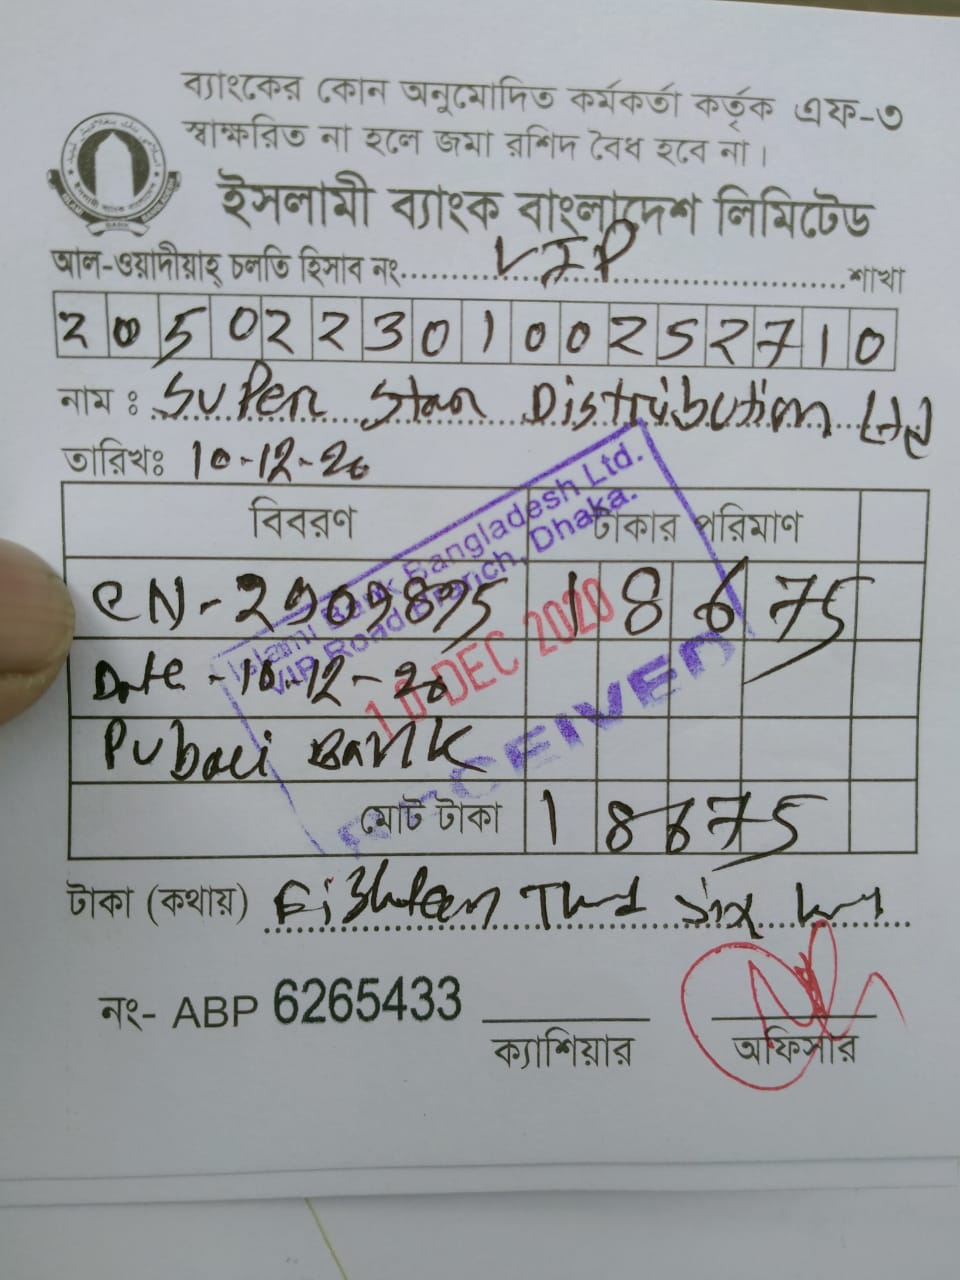 ব্যাংকের কোন অনুমোদিত কর্মকর্তা কর্তৃক এফ-৩
স্বাক্ষরিত না হলে জমা রশিদ বৈধ হবে না।
ইসলামী ব্যাংক বাংলাদেশ লিমিটেড
আল-ওয়াদীয়াহ্ চলতি হিসাব নং VIP শাখা
2 0 5 0 2 2 3 0 1 0 0 2 5 2 7 1 0
নাম : Super Star Distribution Ltd
তারিখঃ 10-12-20
বিবরণ টাকার পরিমাণ
CN-2909895 1 8 6 75
Date - 10-12-20
Pubali Bank
মোট টাকা 1 8 6 75
Islami Bank Bangladesh Ltd.
VIP Road Branch, Dhaka.
10 DEC 2020
RECEIVED
টাকা (কথায়) Eighteen Thnd Six
নং- ABP 6265433
ক্যাশিয়ার অফিসার